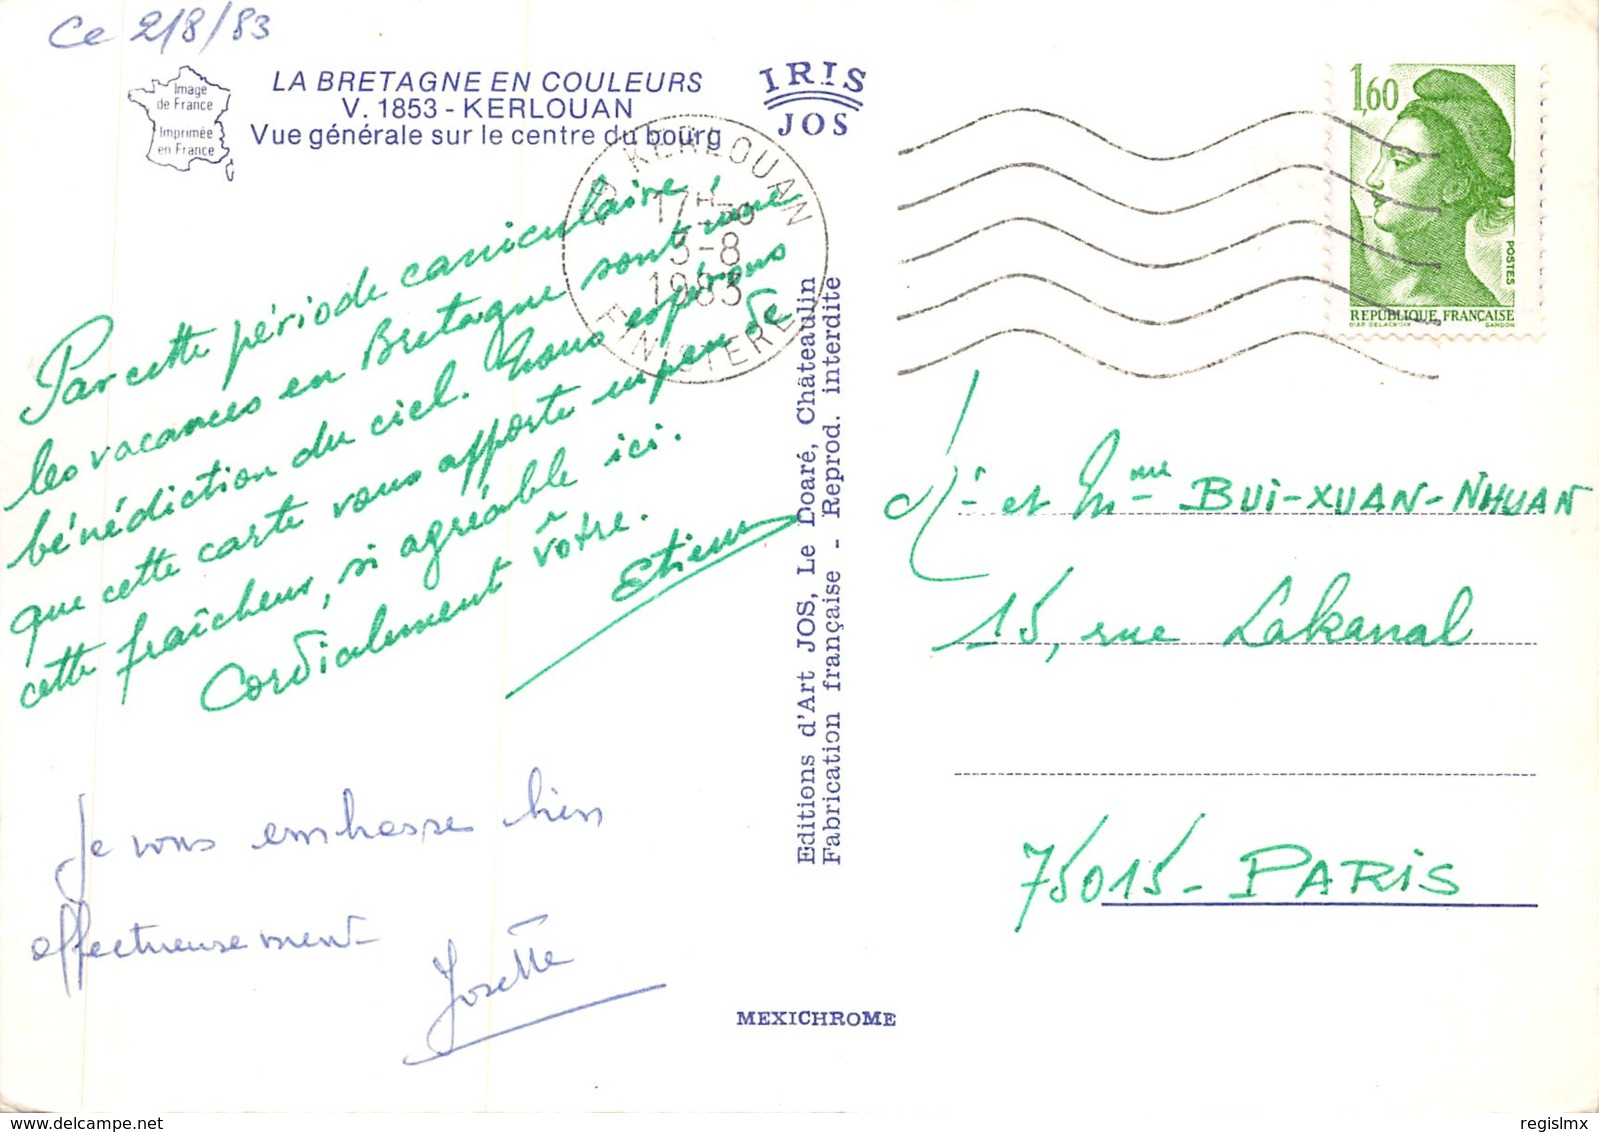 Ce 2/8/83
Image
de France
Imprimée
en France
LA BRETAGNE EN COULEURS
V. 1853 - KERLOUAN
Vue générale sur le centre du bourg
IRIS
JOS
KERLOUAN
17H30
3-8
1983
FINISTERE
1,60
POSTES
REPUBLIQUE FRANÇAISE
D'AP. DELACROIX GANDON
Par cette période caniculaire,
les vacances en Bretagne sont une
bénédiction du ciel. Nous espérons
que cette carte vous apporte un peu de
cette fraîcheur, si agréable ici.
Cordialement vôtre.
Etienne
Je vous embrasse bien
affectueusement
Josette
Editions d'Art JOS, Le Doaré, Châteaulin
Fabrication française - Reprod. interdite
Mr et Mme BUI-XUAN-NHUAN
15, rue Lakanal
75015 - PARIS
MEXICHROME
delcampe.net
regislmx